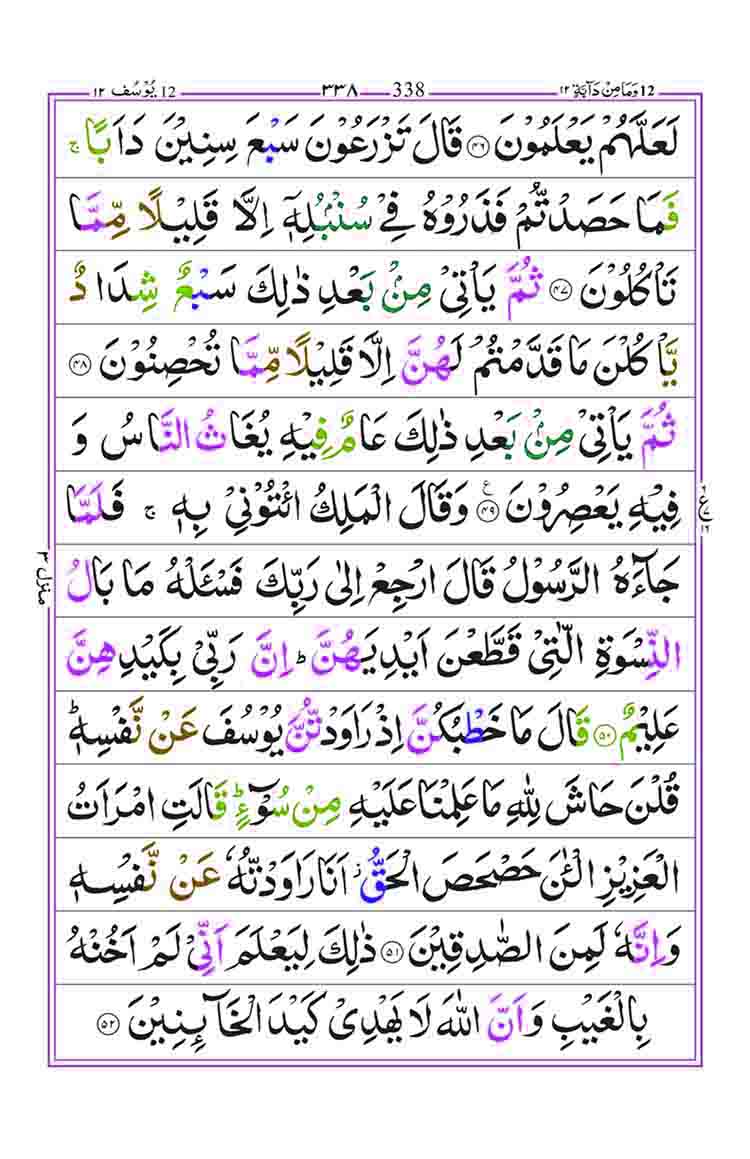 12 وَمَا مِنْ دَآبَّةٍ ١٢ 338 ٣٣٨ 12 يُوْسُف ١٢
لَعَلَّهُمْ يَعْلَمُوْنَ ﴿۴۶﴾ قَالَ تَزْرَعُوْنَ سَبْعَ سِنِيْنَ دَاَبًا ۚ
فَمَا حَصَدْتُّمْ فَذَرُوْهُ فِيْ سُنْۢبُلِهٖۤ اِلَّا قَلِيْلًا مِّمَّا
تَاْكُلُوْنَ ﴿۴۷﴾ ثُمَّ يَاْتِيْ مِنْۢ بَعْدِ ذٰلِكَ سَبْعٌ شِدَادٌ
يَّاْكُلْنَ مَا قَدَّمْتُمْ لَهُنَّ اِلَّا قَلِيْلًا مِّمَّا تُحْصِنُوْنَ ﴿۴۸﴾
ثُمَّ يَاْتِيْ مِنْۢ بَعْدِ ذٰلِكَ عَامٌ فِيْهِ يُغَاثُ النَّاسُ وَ
فِيْهِ يَعْصِرُوْنَ ﴿۴۹﴾ ع وَقَالَ الْمَلِكُ ائْتُوْنِيْ بِهٖ ۚ فَلَمَّا
جَآءَهُ الرَّسُوْلُ قَالَ ارْجِعْ اِلٰى رَبِّكَ فَسْـَٔلْهُ مَا بَالُ
النِّسْوَةِ الّٰتِيْ قَطَّعْنَ اَيْدِيَهُنَّ ؕ اِنَّ رَبِّيْ بِكَيْدِهِنَّ
عَلِيْمٌ ﴿۵۰﴾ قَالَ مَا خَطْبُكُنَّ اِذْ رَاوَدْتُّنَّ يُوْسُفَ عَنْ نَّفْسِهٖ ؕ
قُلْنَ حَاشَ لِلّٰهِ مَا عَلِمْنَا عَلَيْهِ مِنْ سُوْٓءٍ ؕ قَالَتِ امْرَاَتُ
الْعَزِيْزِ الْـٰٔنَ حَصْحَصَ الْحَقُّ ۫ اَنَا رَاوَدْتُّهٗ عَنْ نَّفْسِهٖ
وَاِنَّهٗ لَمِنَ الصّٰدِقِيْنَ ﴿۵۱﴾ ذٰلِكَ لِيَعْلَمَ اَنِّيْ لَمْ اَخُنْهُ
بِالْغَيْبِ وَاَنَّ اللّٰهَ لَا يَهْدِيْ كَيْدَ الْخَآئِنِيْنَ ﴿۵۲﴾
منزل ٣